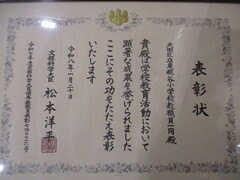 表彰状
大田区立東糀谷小学校教職員一同殿
貴殿は学校教育活動において
顕著な成果を挙げられました
ここにその功をたたえ表彰
いたします
令和八年一月二十日
文部科学大臣 松本洋平